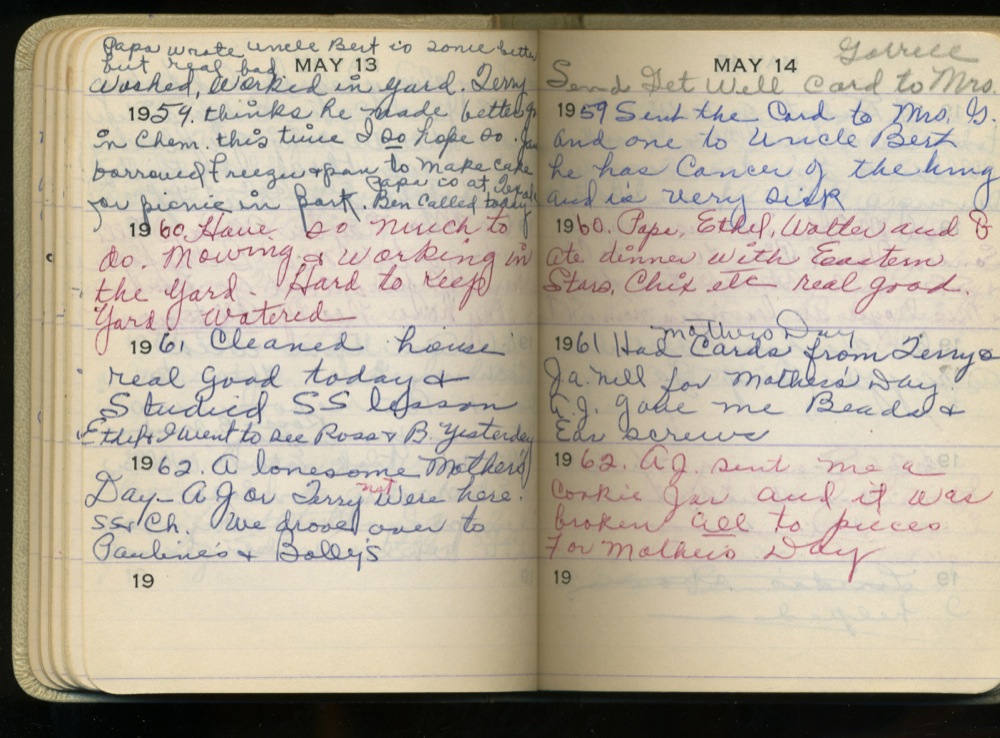 Papa wrote Uncle Bert is some better
but real bad
MAY 13
Washed, Worked in yard. Terry
1959. thinks he made better
in Chem. this time I so hope so.
borrowed Freezer & pan to make cake
Papa is at
for picnic in Park. Ben Called today
1960. Have so much to
do. Mowing & Working in
the Yard. Hard to keep
Yard Watered
1961 Cleaned house
real Good today &
Studied SS lesson
Ethel & I went to see Ross & B. Yesterday
1962. A lonesome Mother's
Day - A J or Terry not Were here.
SS & Ch. We drove over to
Pauline's & Bolley's
19
Gorrell
MAY 14
Send Get Well Card to Mrs.
1959 Sent the Card to Mrs. G.
and one to Uncle Bert
he has Cancer of the lung
and is very sick
1960. Papa, Ethel, Walter and B
ate dinner with Eastern
Stars, Chix etc real good.
Mothers Day
1961 Had Cards from Terry &
Ja.nell for Mother's Day
A.J. gave me Beads &
Ear screws
1962. A.J. sent me a
Cookie Jar and it was
broken all to pieces
For Mother's Day
19